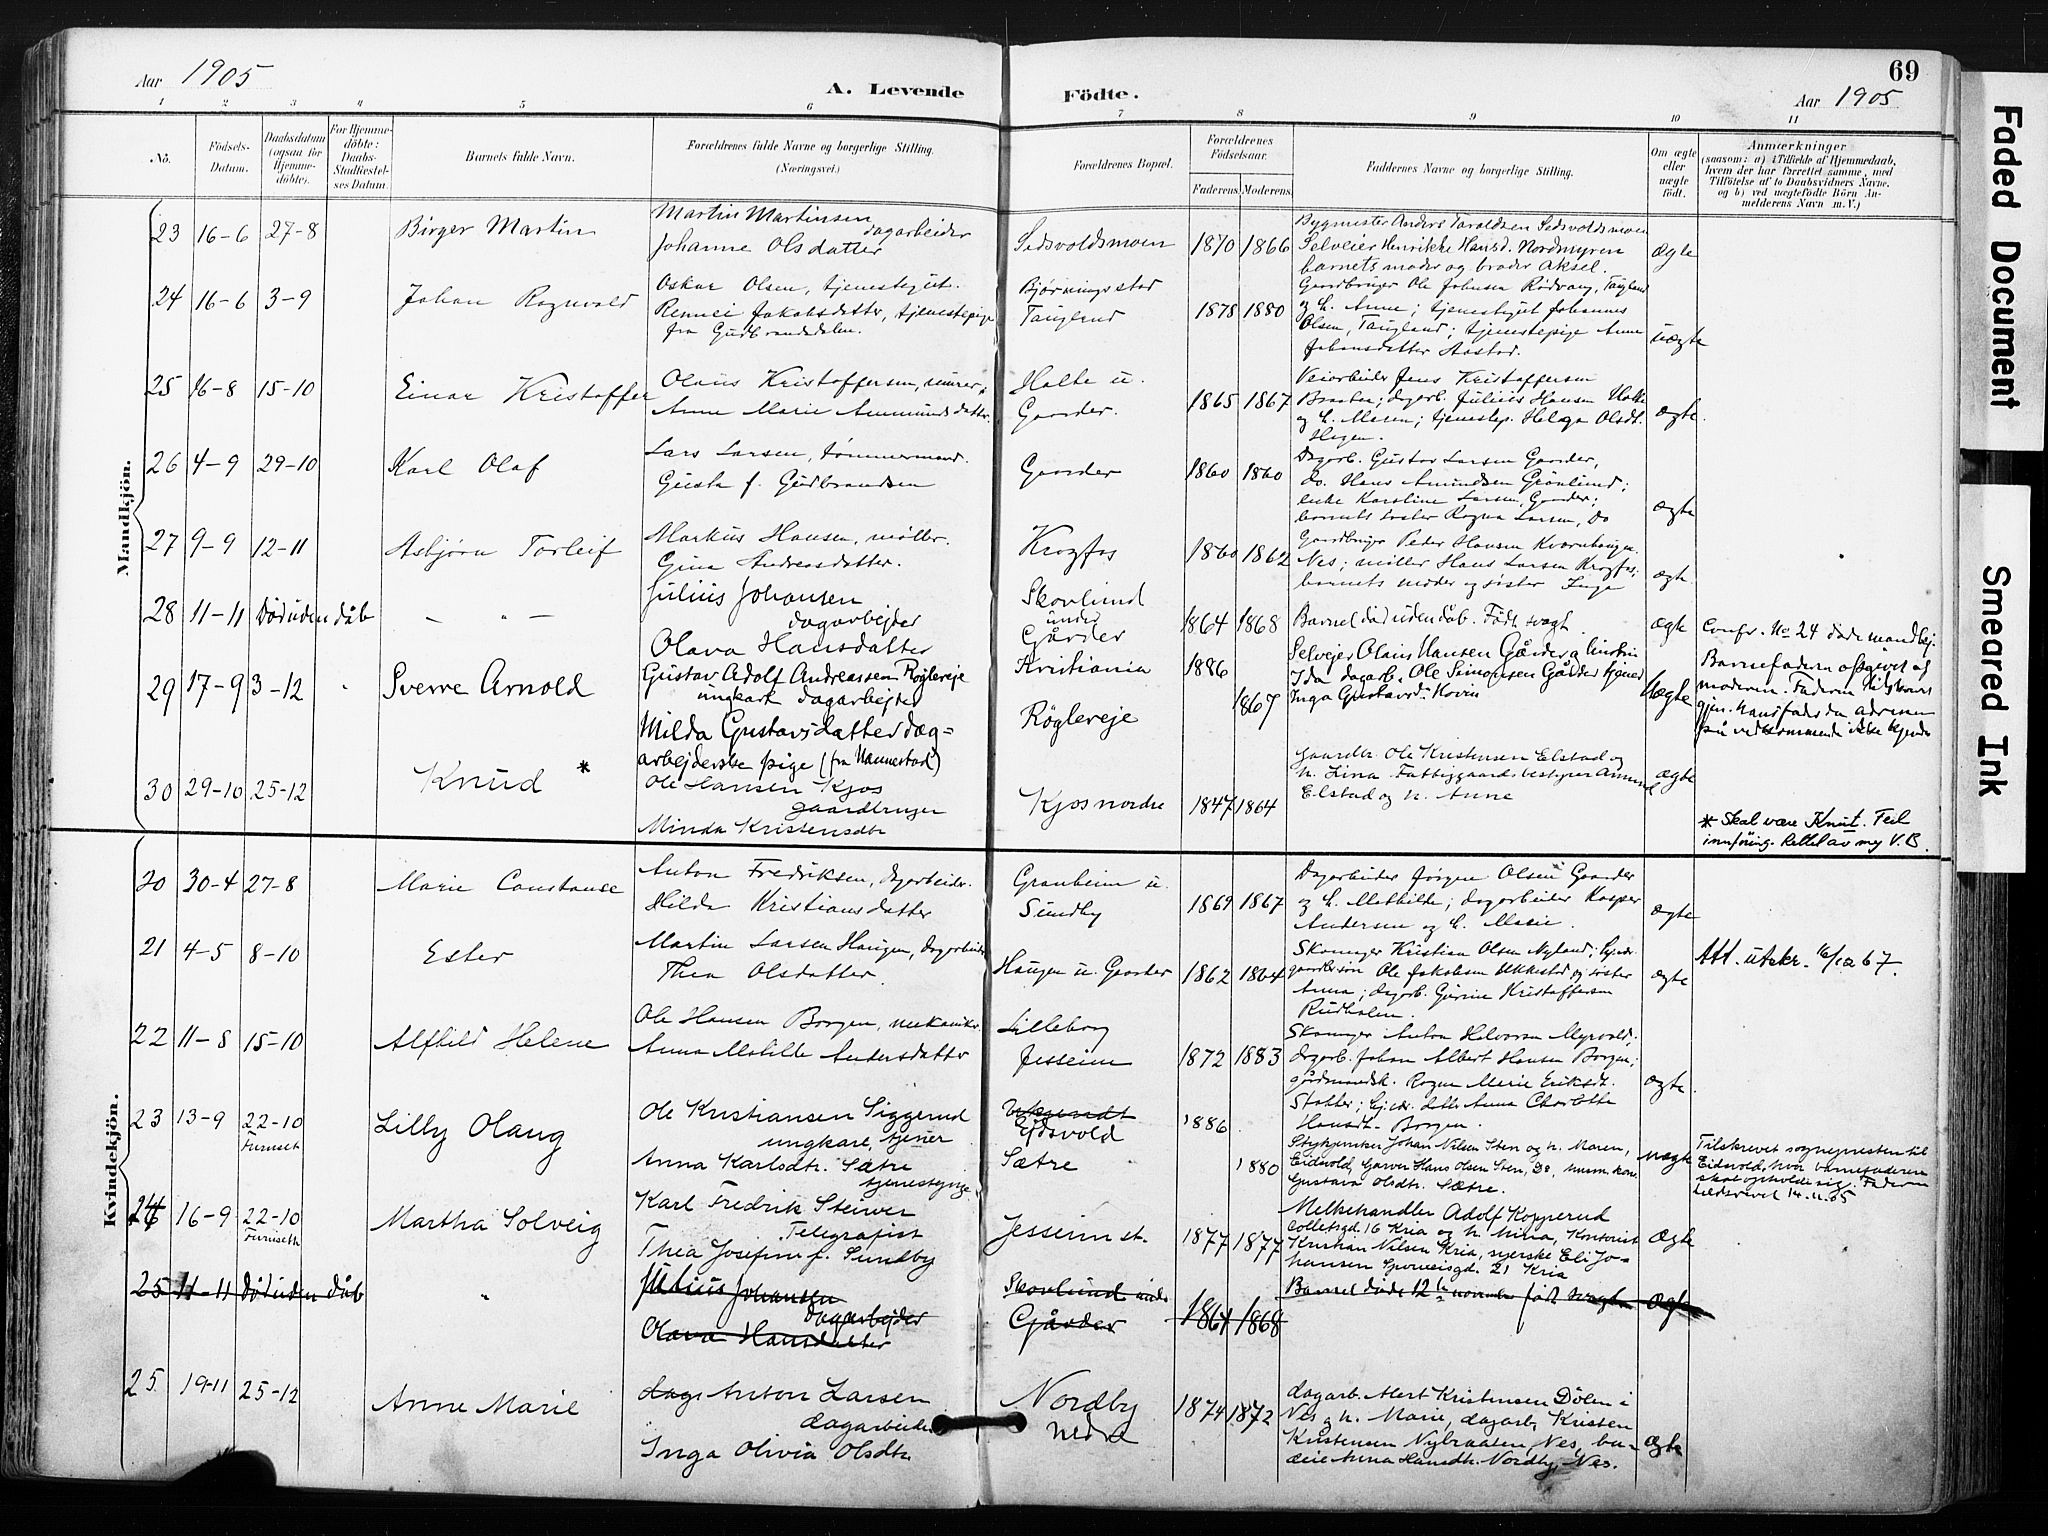 Aar 1905
A. Levende Födte.
69
Aar 1905
1 2 3 4 5 6 7 8 9 10 11
No.
Födsels-Datum.
Daabsdatum (ogsaa for Hjemme-döbte).
For Hjemme-döbte: Daabs-Stadfæstel-ses Datum.
Barnets fulde Navn.
Forældrenes fulde Navne og borgerlige Stilling.
(Næringsvei.)
Forældrenes Bopæl.
Forældrenes Födselsaar.
Faderens. Moderens.
Faddernes Navne og borgerlige Stilling.
Om ægte eller uægte födt.
Anmærkninger
(saasom: a) i Tilfælde af Hjemmedaab,
hvem der har forrettet samme, med
Tilföielse af to Daabsvidners Navne,
og b) ved uægtefödte Börn An-
melderens Navn m. V.)
Mandkjön.
23 16-6 27-8 Birger Martin
Martin Martinsen
dagarbeider
Johanne Olsdatter
Sedsvoldsmoen 1870 1866
Bygmester Anders Taraldsen Sedsvoldsmoen
Selveier Henrikke Hansd. Nordmyren
barnets moder og broder Aksel.
ægte
24 16-6 3-9 Johan Ragnvald
Oskar Olsen, tjenestegut.
Rennei Jakobsdatter, tjenestepige
fra Gudbrandsdalen.
Bjørningstad
Tauglund
1878 1880
Gaardbruger Ole Johnsen Rødvang, Tauglund
og h. Anne; tjenestegut Johannes
Olsen, Tauglund; tjenestepige Anne
Johansdatter Aastad.
uægte
25 16-8 15-10 Einar Kristoffer
Olaus Kristoffersen, murer,
Anne Marie Ammundsdatter.
Holte u.
Gaarder.
1865 1867
Veiarbeider Jens Kristoffersen
Braaten; dagarb. Julius Hansen Holte
og h. Maren; tjenestep. Helga Olsdt.
Hagen.
ægte.
26 4-9 29-10 Karl Olaf
Lars Larsen, tømmermand.
Gusta f. Gudbrandsen
Gaarder 1860 1860
Dagarb. Gustav Larsen Gaarder,
do. Hans Amundsen Grønlund;
enke Karoline Larsen, Gaarder;
barnets søster Ragna Larsen, do
ægte
27 9-9 12-11 Asbjørn Torleif
Markus Hansen, møller.
Gina Andreasdatter.
Krogfos 1860 1862
Gaardbruger Peder Hansen Kvernhaugen
Nes; møller Hans Larsen Krogfos;
barnets moder og søster Inga
ægte
28 11-11 Död uden dåb - " -
Julius Johansen
dagarbejder
Olava Hansdatter
Skovlund
under
Gårder
1864 1868
Barnet död uden dåb. Födt svagt.
ægte
Confr. No 24 döde mandkj.
29 17-9 3-12 Sverre Arnold
Gustav Adolf Andreassen Rögleveje
ungkarl dagarbejder
Milda Gustavsdatter dag=
arbejderske pige (fra Nannestad)
Kristiania 1886
Rögleveje 1867
Selvejer Olaus Hansen Gårder og hustru
Ida dagarb. Ole Simonsen Gårder tjened
Inga Gustavsd. Hovin
Uægte
Barnefaderen opgivet af
moderen. Faderen tilskrevet
30 29-10 25-12 Knud *
Ole Hansen Kjos
gaardbruger
Minda Kristensdtr
Kjos nordre 1847 1864
gaardbr. Ole Kristensen Elstad og
h. Lina Fattiggaardsbestyrer Ammund
Elstad og h. Anne
ægte
* Skal være Knut. Feil
innføring. Rettet av meg V.B.
Kvindekjön.
20 30-4 27-8 Marie Constance
Anton Fredriksen, dagarbeider.
Hilda Kristiansdatter
Granheim u.
Sundby
1869 1867
Dagarbeider Jørgen Olsen Gaarder
og h. Mathilde; dagarbeider Kasper
Andersen og h. Marie.
ægte
21 4-5 8-10 Ester
Martin Larsen Haugen, dagarbeider
Thea Olsdatter.
Haugen u. Gaarder 1862 1864
Skomager Kristian Olsen Nyland;
gaardbr.søn Ole Jakobsen Ukkestad og søster
Anna; dagarb. Gunine Kristoffersen
Rudholen.
ægte
Att. utskr. 16/10 67.
22 11-8 15-10 Alfhild Helene
Ole Hansen Borgen, mekaniker.
Anna Matilde Andersdatter
Lilleborg
Jessheim
1872 1883
Skomager Anton Halvorsen Myrvold;
dagarb. Johan Albert Hansen Borgen;
gårdmandsk. Ragna Marie Eriksdt.
Slotter; Gjæv. dattr Anna Charlotte
Hansdt. Borgen.
ægte
23 13-9 22-10
Furuseth
Lilly Olaug
Ole Kristiansen Siggerud
ungkarl, tjener
Anna Karlsdtr. Sætre
tjenestepige
Ejdsvold
Sætre
1886
1880
Stykjunker Johan Nilsen Sten og h. Maren,
Eidsvold, Garver Hans Olsen Sten, Do,
Gustava Olsdtr. Sætre.
uægte
Tilskrevet sognepresten til
Eidsvold, hvor barnefaderen
skal opholde sig. Faderen
tilskrevet 14-11-05
24 16-9 22-10
Furuseth
Martha Solveig
Karl Fredrik Steiwer
Telegrafist
Thea Josefine f. Sundby
Jessheim st. 1877 1877
Melkehandler Adolf Kopperud
Colletsgd. 16 Kria og h. Mina, Kontorist
Kristian Nilsen Kria, syerske Eli Jo-
hansen Sporveisgd. 21 Kria
ægte
25 11-11 Död uden dåb "
Julius Johansen
dagarbejder
Olava Hansdatter
Skovlund under
Gårder
1864 1868
Barnet döde 12te november födt svagt
ægte
25. 19-11 25-12 Anne Marie
dag. Anton Larsen
dagarbeider
Inga Olivia Olsdtr.
Nordby
nedre
1874 1872
dagarb. Alert Kristensen Dölen i
Nes og h. Marie, dagarb. Kristen
Kristensen Nybraaten, Nes, bu-
deie Anna Hansdtr. Nordby, Nes.
ægte
Faded Document
Smeared Ink